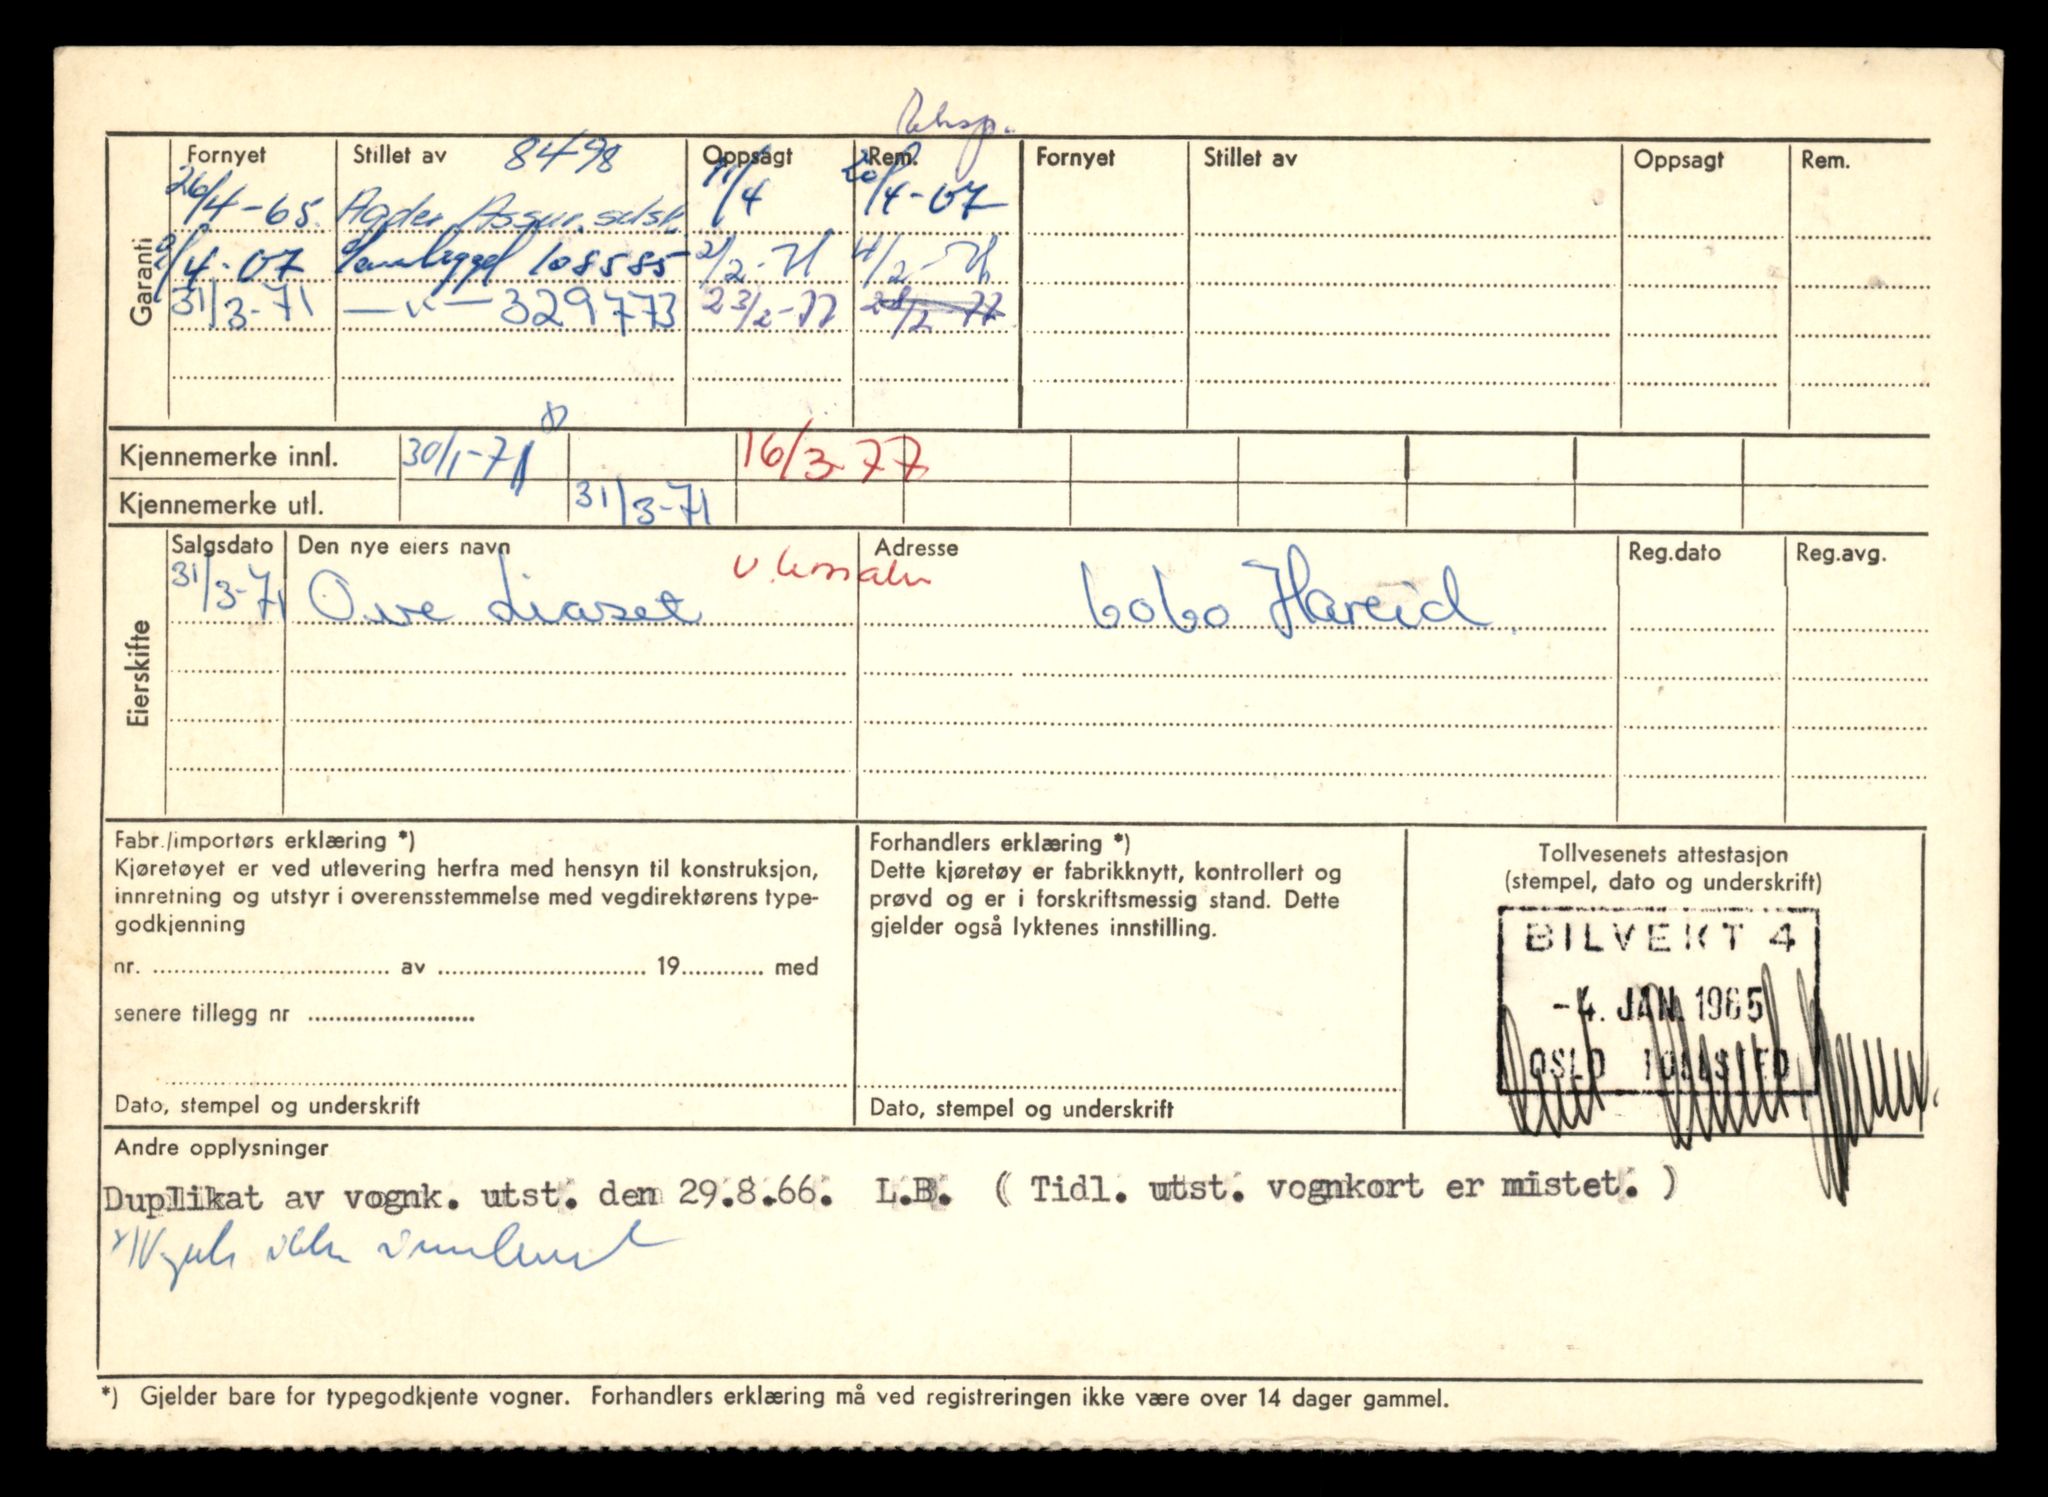 Fornyet Stillet av 8498 Oppsagt Rem. Fornyet Stillet av Oppsagt Rem.
26/4-65. Agder Assur.selsk. 11/4 20/4-67
Garanti
/4-67 Samtrygd 108585 2/2-71 4/2-71
31/3-71 —"— 329773 23/2-77 28/2-77
Kjennemerke innl. 30/1-71 16/3-77
Kjennemerke utl. 31/3-71
Eierskifte
Salgsdato Den nye eiers navn Adresse Reg.dato Reg.avg.
31/3-71 Ove Liaset 6060 Hareid.
Fabr./importørs erklæring *)
Kjøretøyet er ved utlevering herfra med hensyn til konstruksjon,
innretning og utstyr i overensstemmelse med vegdirektørens type-
godkjenning
nr. av 19 med
senere tillegg nr
Dato, stempel og underskrift
Forhandlers erklæring *)
Dette kjøretøy er fabrikknytt, kontrollert og
prøvd og er i forskriftsmessig stand. Dette
gjelder også lyktenes innstilling.
Dato, stempel og underskrift
Tollvesenets attestasjon
(stempel, dato og underskrift)
BILVEKT 4
-4. JAN. 1965
OSLO TOLLSTED
Andre opplysninger
Duplikat av vognk. utst. den 29.8.66. L.B. ( Tidl. utst. vognkort er mistet. )
ikke
*) Gjelder bare for typegodkjente vogner. Forhandlers erklæring må ved registreringen ikke være over 14 dager gammel.